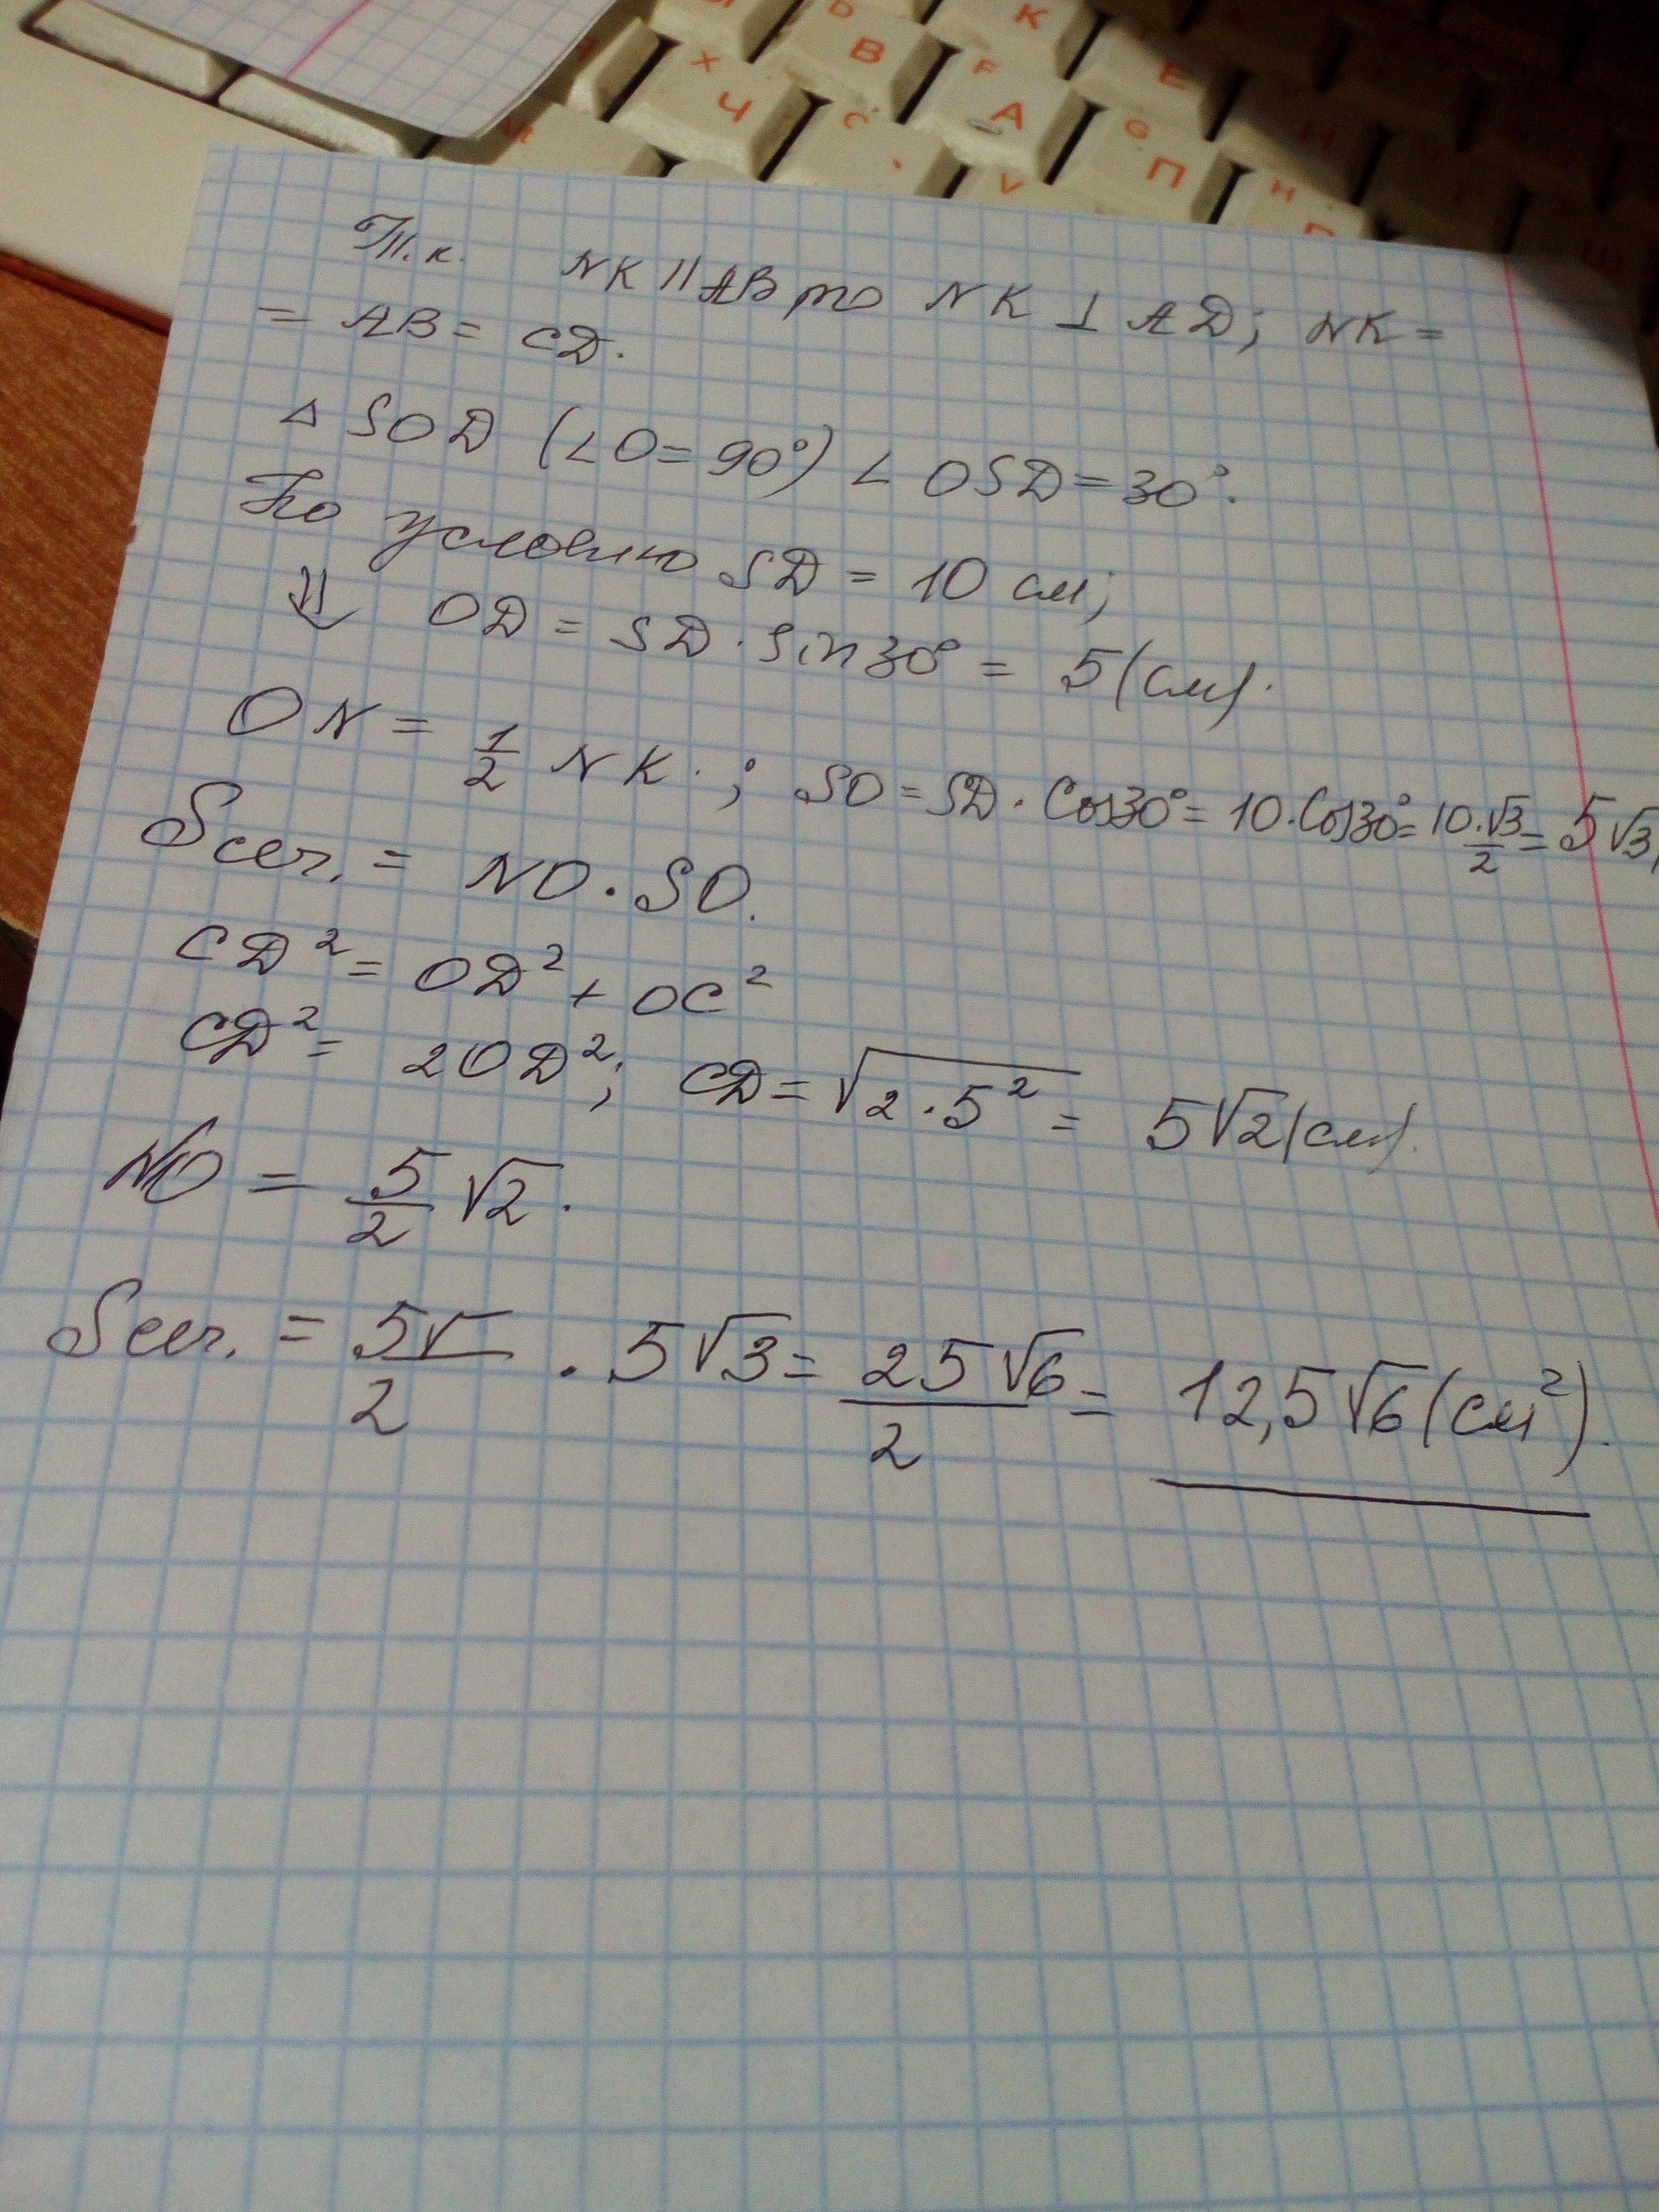 К
D
В
F
А
E
X
Ч
С
G
П
V
Н
Т.к. NK || AB то NK ⊥ AD; NK =
= AB = CD.
△ SOD (∠O = 90°) ∠ OSD = 30°.
По условию SD = 10 см;
⇓ OD = SD · Sin 30° = 5 (см).
ON = 1/2 NK. ; SO = SD · Cos 30° = 10 · Cos 30° = 10·√3/2 = 5√3
Sсеч. = NO · SO.
CD² = OD² + OC²
CD² = 2OD²; CD = √(2·5²) = 5√2 (см).
NO = 5/2 √2.
Sсеч. = 5√/2 · 5√3 = 25√6/2 = 12,5√6 (см²).